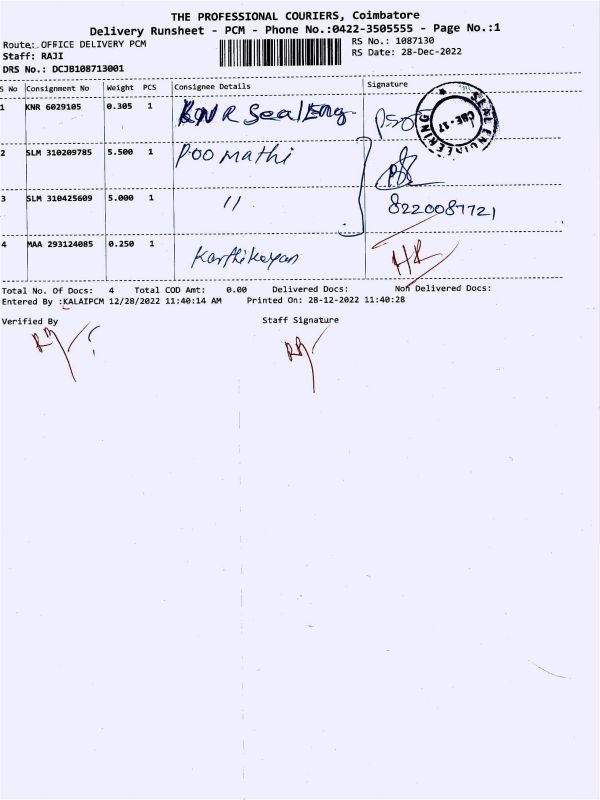 THE PROFESSIONAL COURIERS, Coimbatore
Delivery Runsheet - PCM - Phone No.:0422-3505555 - Page No.:1
Route: OFFICE DELIVERY PCM RS No.: 1087130
Staff: RAJI RS Date: 28-Dec-2022
DRS No.: DCJB108713001
S No Consignment No Weight PCS Consignee Details Signature
1 KNR 6029105 0.305 1 KNR Seal Eng
SEAL ENGINEERING CBE-17
2 SLM 310209785 5.500 1 Poo mathi
3 SLM 310425609 5.000 1 " 8220087721
4 MAA 293124085 0.250 1 Karthikeyan
Total No. Of Docs: 4 Total COD Amt: 0.00 Delivered Docs: Non Delivered Docs:
Entered By :KALAIPCM 12/28/2022 11:40:14 AM Printed On: 28-12-2022 11:40:28
Verified By Staff Signature